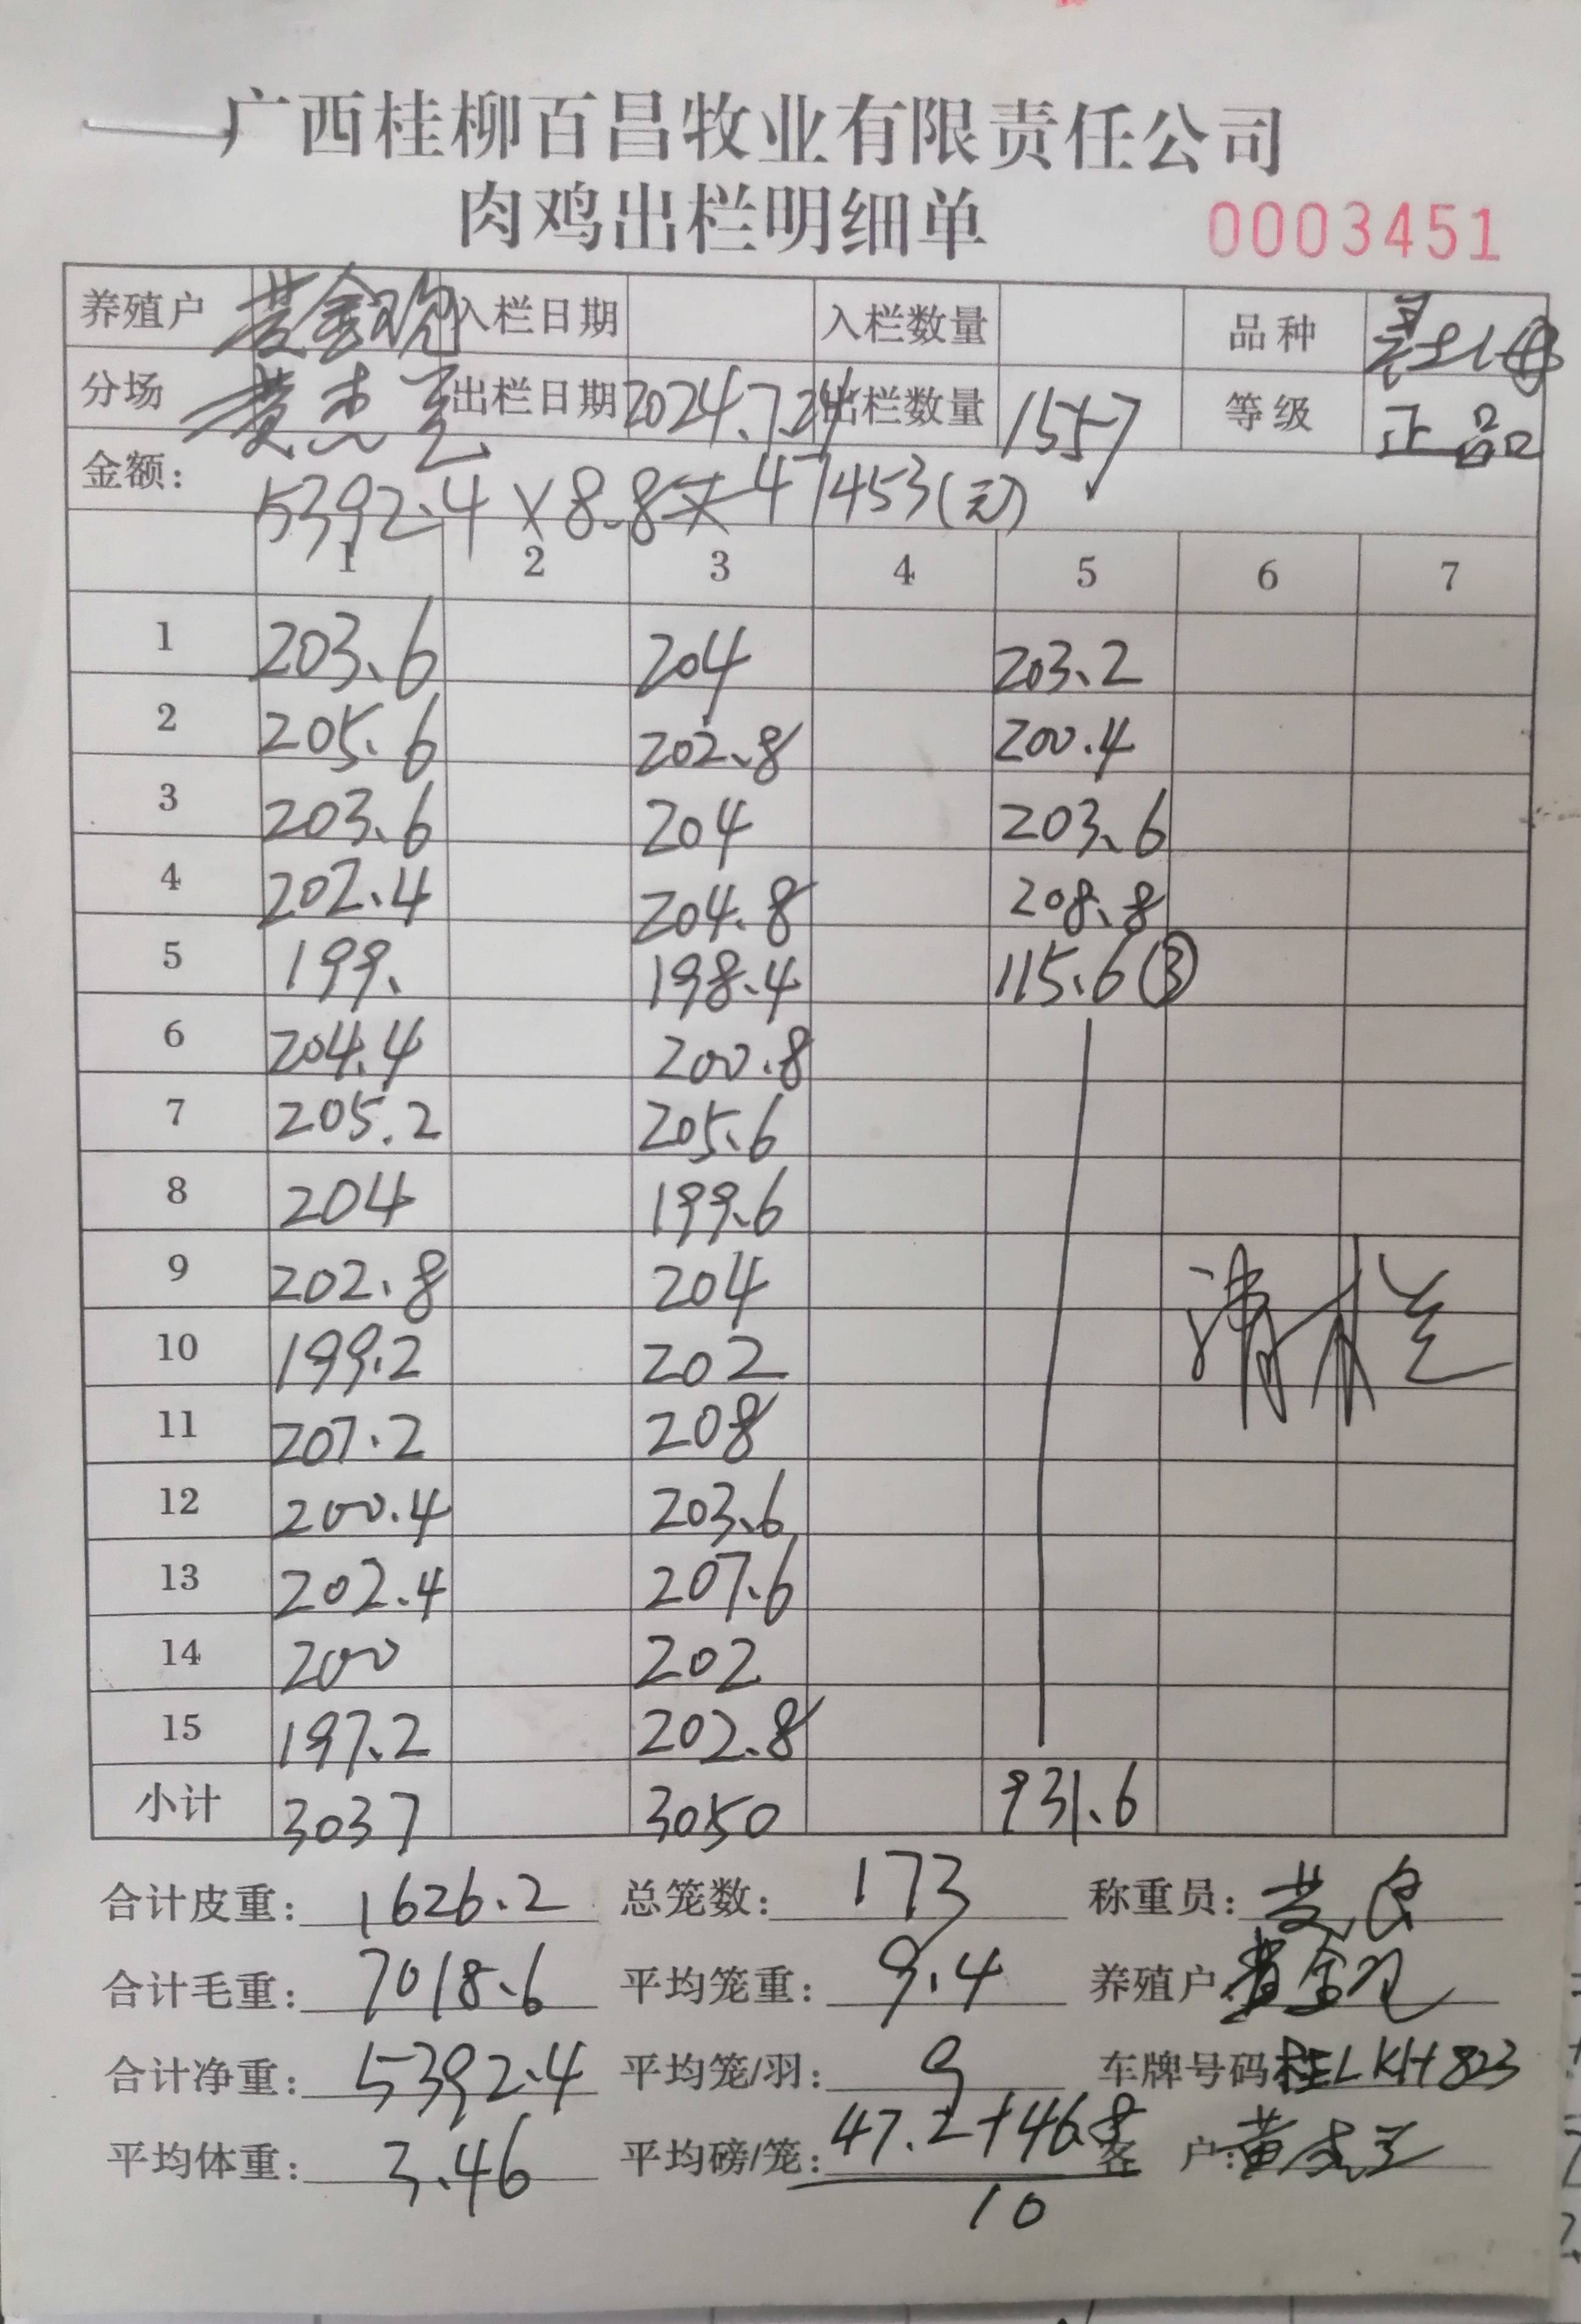 广西桂柳百昌牧业有限责任公司
肉鸡出栏明细单 0003451
养殖户 黄金 入栏日期 入栏数量 品种 土2母
分场 黄杰 出栏日期 2024.7.24 出栏数量 1557 等级 正品
金额: 5392.4 × 8.8 = 47453(元)
1 2 3 4 5 6 7
1 203.6 204 203.2
2 205.6 202.8 200.4
3 203.6 204 203.6
4 202.4 204.8 208.8
5 199. 198.4 115.6 ③
6 204.4 200.8
7 205.2 205.6
8 204 199.6
9 202.8 204 清栏
10 199.2 202
11 207.2 208
12 200.4 203.6
13 202.4 207.6
14 200 202
15 197.2 202.8
小计 3037 3050 931.6
合计皮重: 1626.2 总笼数: 173 称重员: 黄良
合计毛重: 7018.6 平均笼重: 9.4 养殖户 黄金
合计净重: 5392.4 平均笼/羽: 9 车牌号码 桂LKH823
平均体重: 3.46 平均磅/笼: 47.2+46.8 客户: 黄杰
10